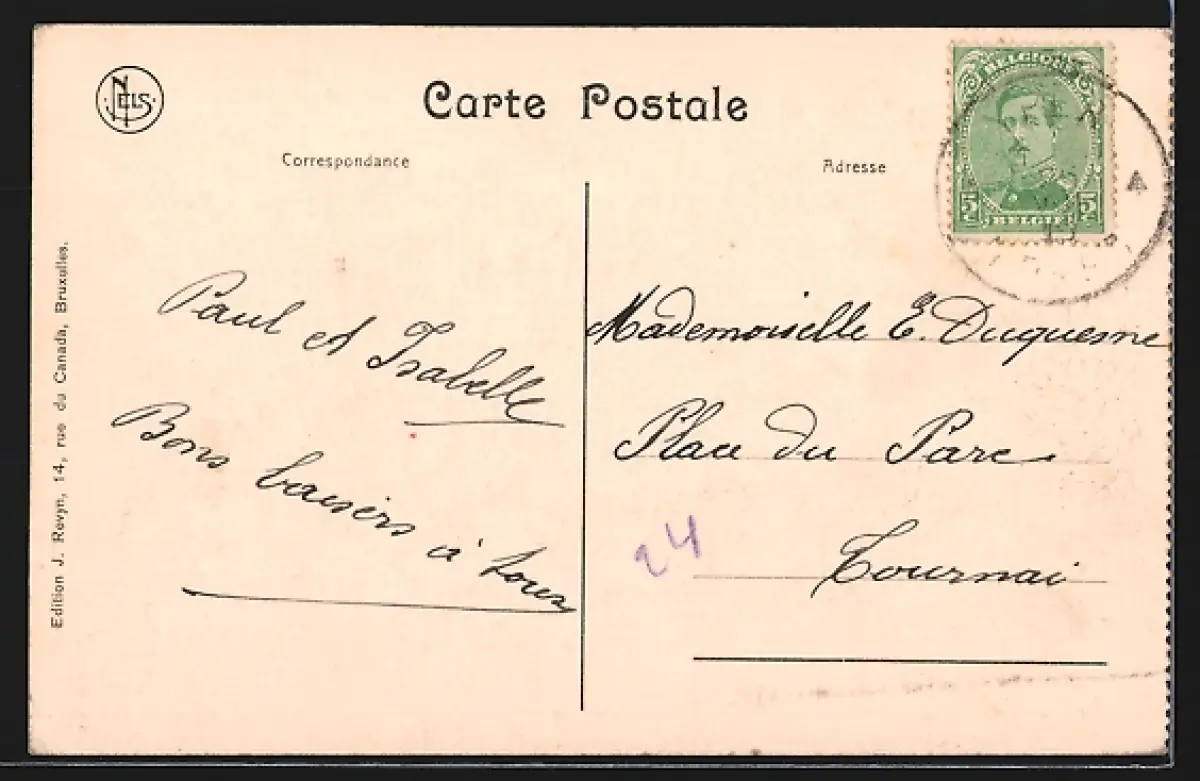 NELS
Carte Postale
Correspondance
Adresse
BELGIQUE
5 5
BELGIË
Edition J. Revyn, 14, rue du Canada, Bruxelles.
Paul et Isabelle
Bons baisers à tous
Mademoiselle E. Duquesne
Place du Parc
24
Tournai